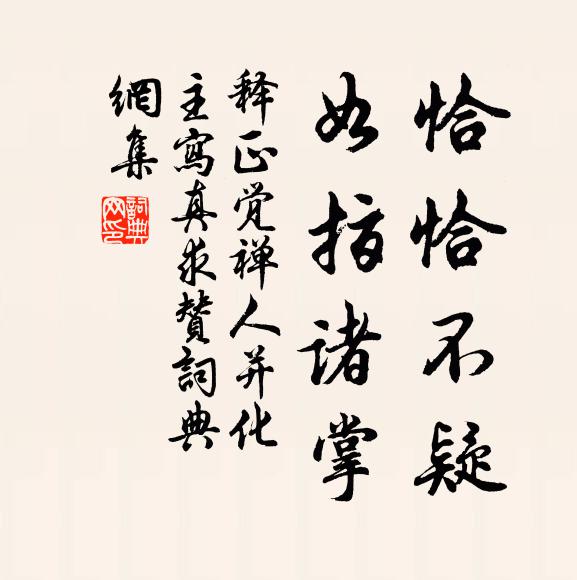 恰恰不疑
如指诸掌
释正觉禅人并化
主寫真求赞詞典
網集
詞典
网印